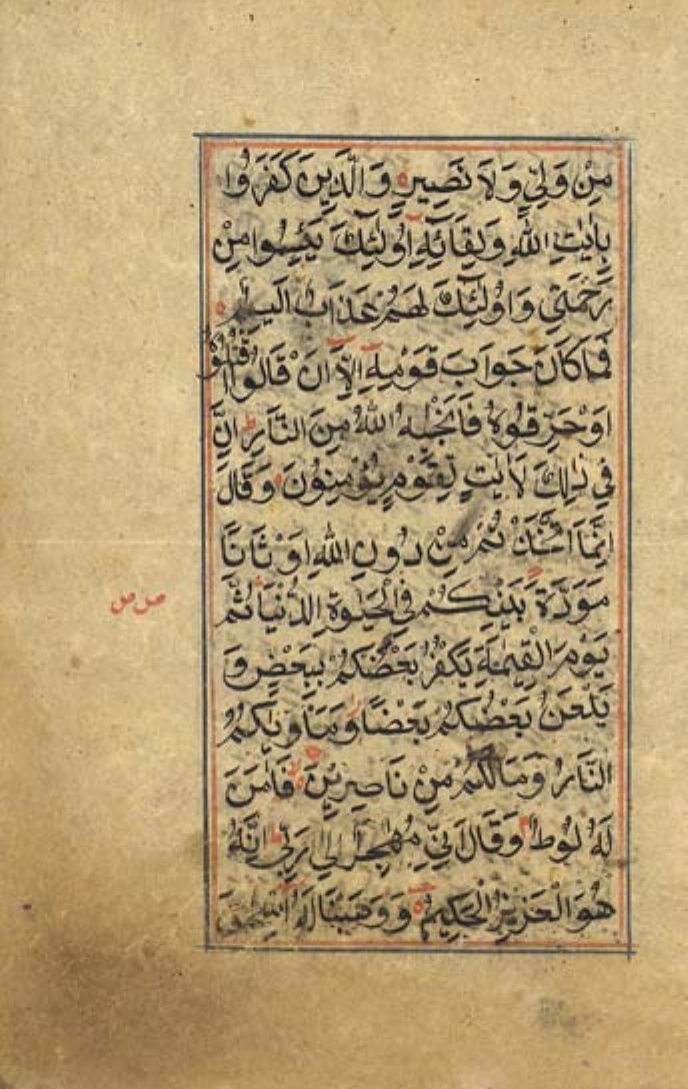 مِنْ وَلِيٍّ وَلَا نَصِيرٍ وَالَّذِينَ كَفَرُوا
بِاٰيٰتِ اللّٰهِ وَلِقَآئِهٖ اُولٰٓئِكَ يَئِسُوا مِنْ
رَحْمَتِي وَاُولٰٓئِكَ لَهُمْ عَذَابٌ اَلِيمٌ
فَمَا كَانَ جَوَابَ قَوْمِهٖ اِلَّا اَنْ قَالُوا اقْتُلُوهُ
اَوْ حَرِّقُوهُ فَاَنْجٰىهُ اللّٰهُ مِنَ النَّارِ اِنَّ
فِي ذٰلِكَ لَاٰيٰتٍ لِقَوْمٍ يُؤْمِنُونَ وَقَالَ
اِنَّمَا اتَّخَذْتُمْ مِنْ دُونِ اللّٰهِ اَوْثَانًا
مَوَدَّةَ بَيْنِكُمْ فِي الْحَيٰوةِ الدُّنْيَا ثُمَّ
يَوْمَ الْقِيٰمَةِ يَكْفُرُ بَعْضُكُمْ بِبَعْضٍ وَ
يَلْعَنُ بَعْضُكُمْ بَعْضًا وَمَاْوٰىكُمُ
النَّارُ وَمَا لَكُمْ مِنْ نَاصِرِينَ فَاٰمَنَ
لَهُ لُوطٌ وَقَالَ اِنِّي مُهَاجِرٌ اِلٰى رَبِّي اِنَّهُ
هُوَ الْعَزِيزُ الْحَكِيمُ وَوَهَبْنَا لَهُ اِسْحٰقَ
ص ص